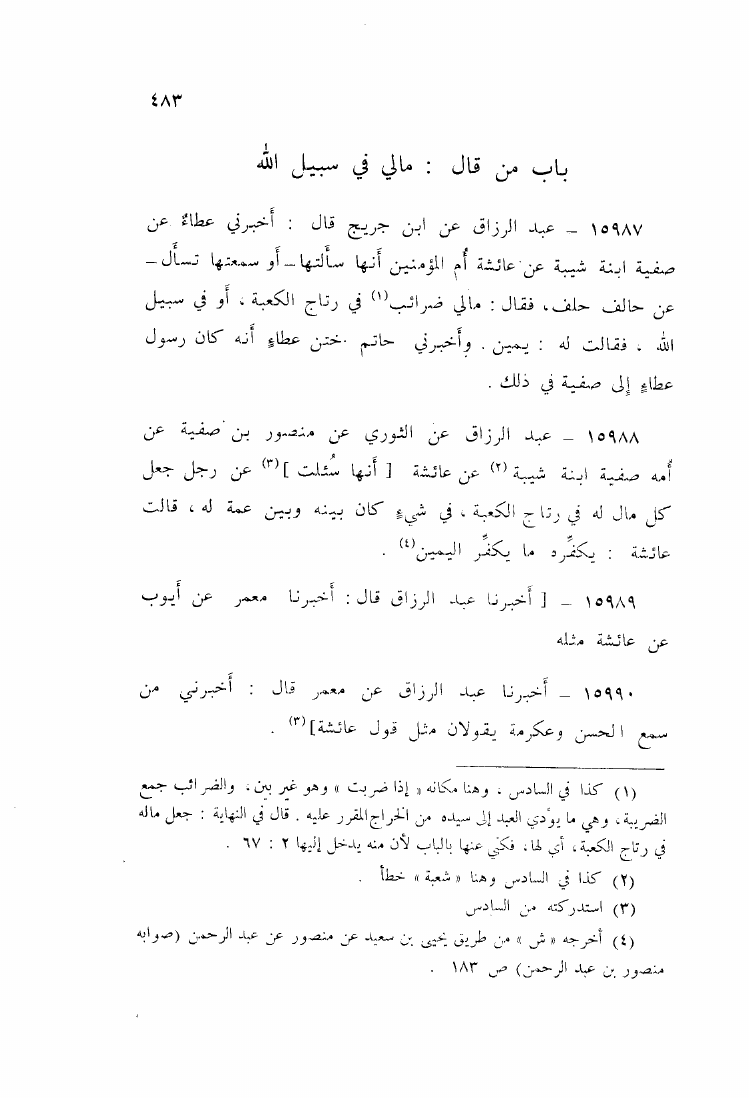 ٤٨٣
باب من قال : مالي في سبيل الله
١٥٩٨٧ – عبد الرزاق عن ابن جريج قال : أخبرني عطاءٌ عن
صفية ابنة شيبة عن عائشة أم المؤمنين أنها سألتها – أو سمعتها تسأل –
عن حالف حلف، فقال : مالي ضرائب(١) في رتاج الكعبة ، أو في سبيل
الله ، فقالت له : يمين . وأخبرني حاتم ختن عطاءٍ أنه كان رسول
عطاءٍ إلى صفية في ذلك .
١٥٩٨٨ – عبد الرزاق عن الثوري عن منصور بن صفية عن
أُمه صفية ابنة شيبة (٢) عن عائشة [ أنها سُئلت ](٣) عن رجل جعل
كل مال له في رتاج الكعبة ، في شيءٍ كان بينه وبين عمة له ، قالت
عائشة : يكفِّره ما يكفِّر اليمين(٤) .
١٥٩٨٩ – [ أخبرنا عبد الرزاق قال : أخبرنا معمر عن أيوب
عن عائشة مثله
١٥٩٩٠ – أخبرنا عبد الرزاق عن معمر قال : أخبرني من
سمع الحسن وعكرمة يقولان مثل قول عائشة](٣) .
(١) كذا في السادس ، وهنا مكانه « إذا ضربت » وهو غير بيّن، والضرائب جمع
الضريبة، وهي ما يؤدي العبد إلى سيده من الخراج المقرر عليه . قال في النهاية : جعل ماله
في رتاج الكعبة، أي لها، فكنّي عنها بالباب لأن منه يدخل إليها ٢ : ٦٧ .
(٢) كذا في السادس وهنا « شعبة » خطأ .
(٣) استدركته من السادس
(٤) أخرجه « ش » من طريق يحيى بن سعيد عن منصور عن عبد الرحمن (صوابه
منصور بن عبد الرحمن) ص ١٨٣ .